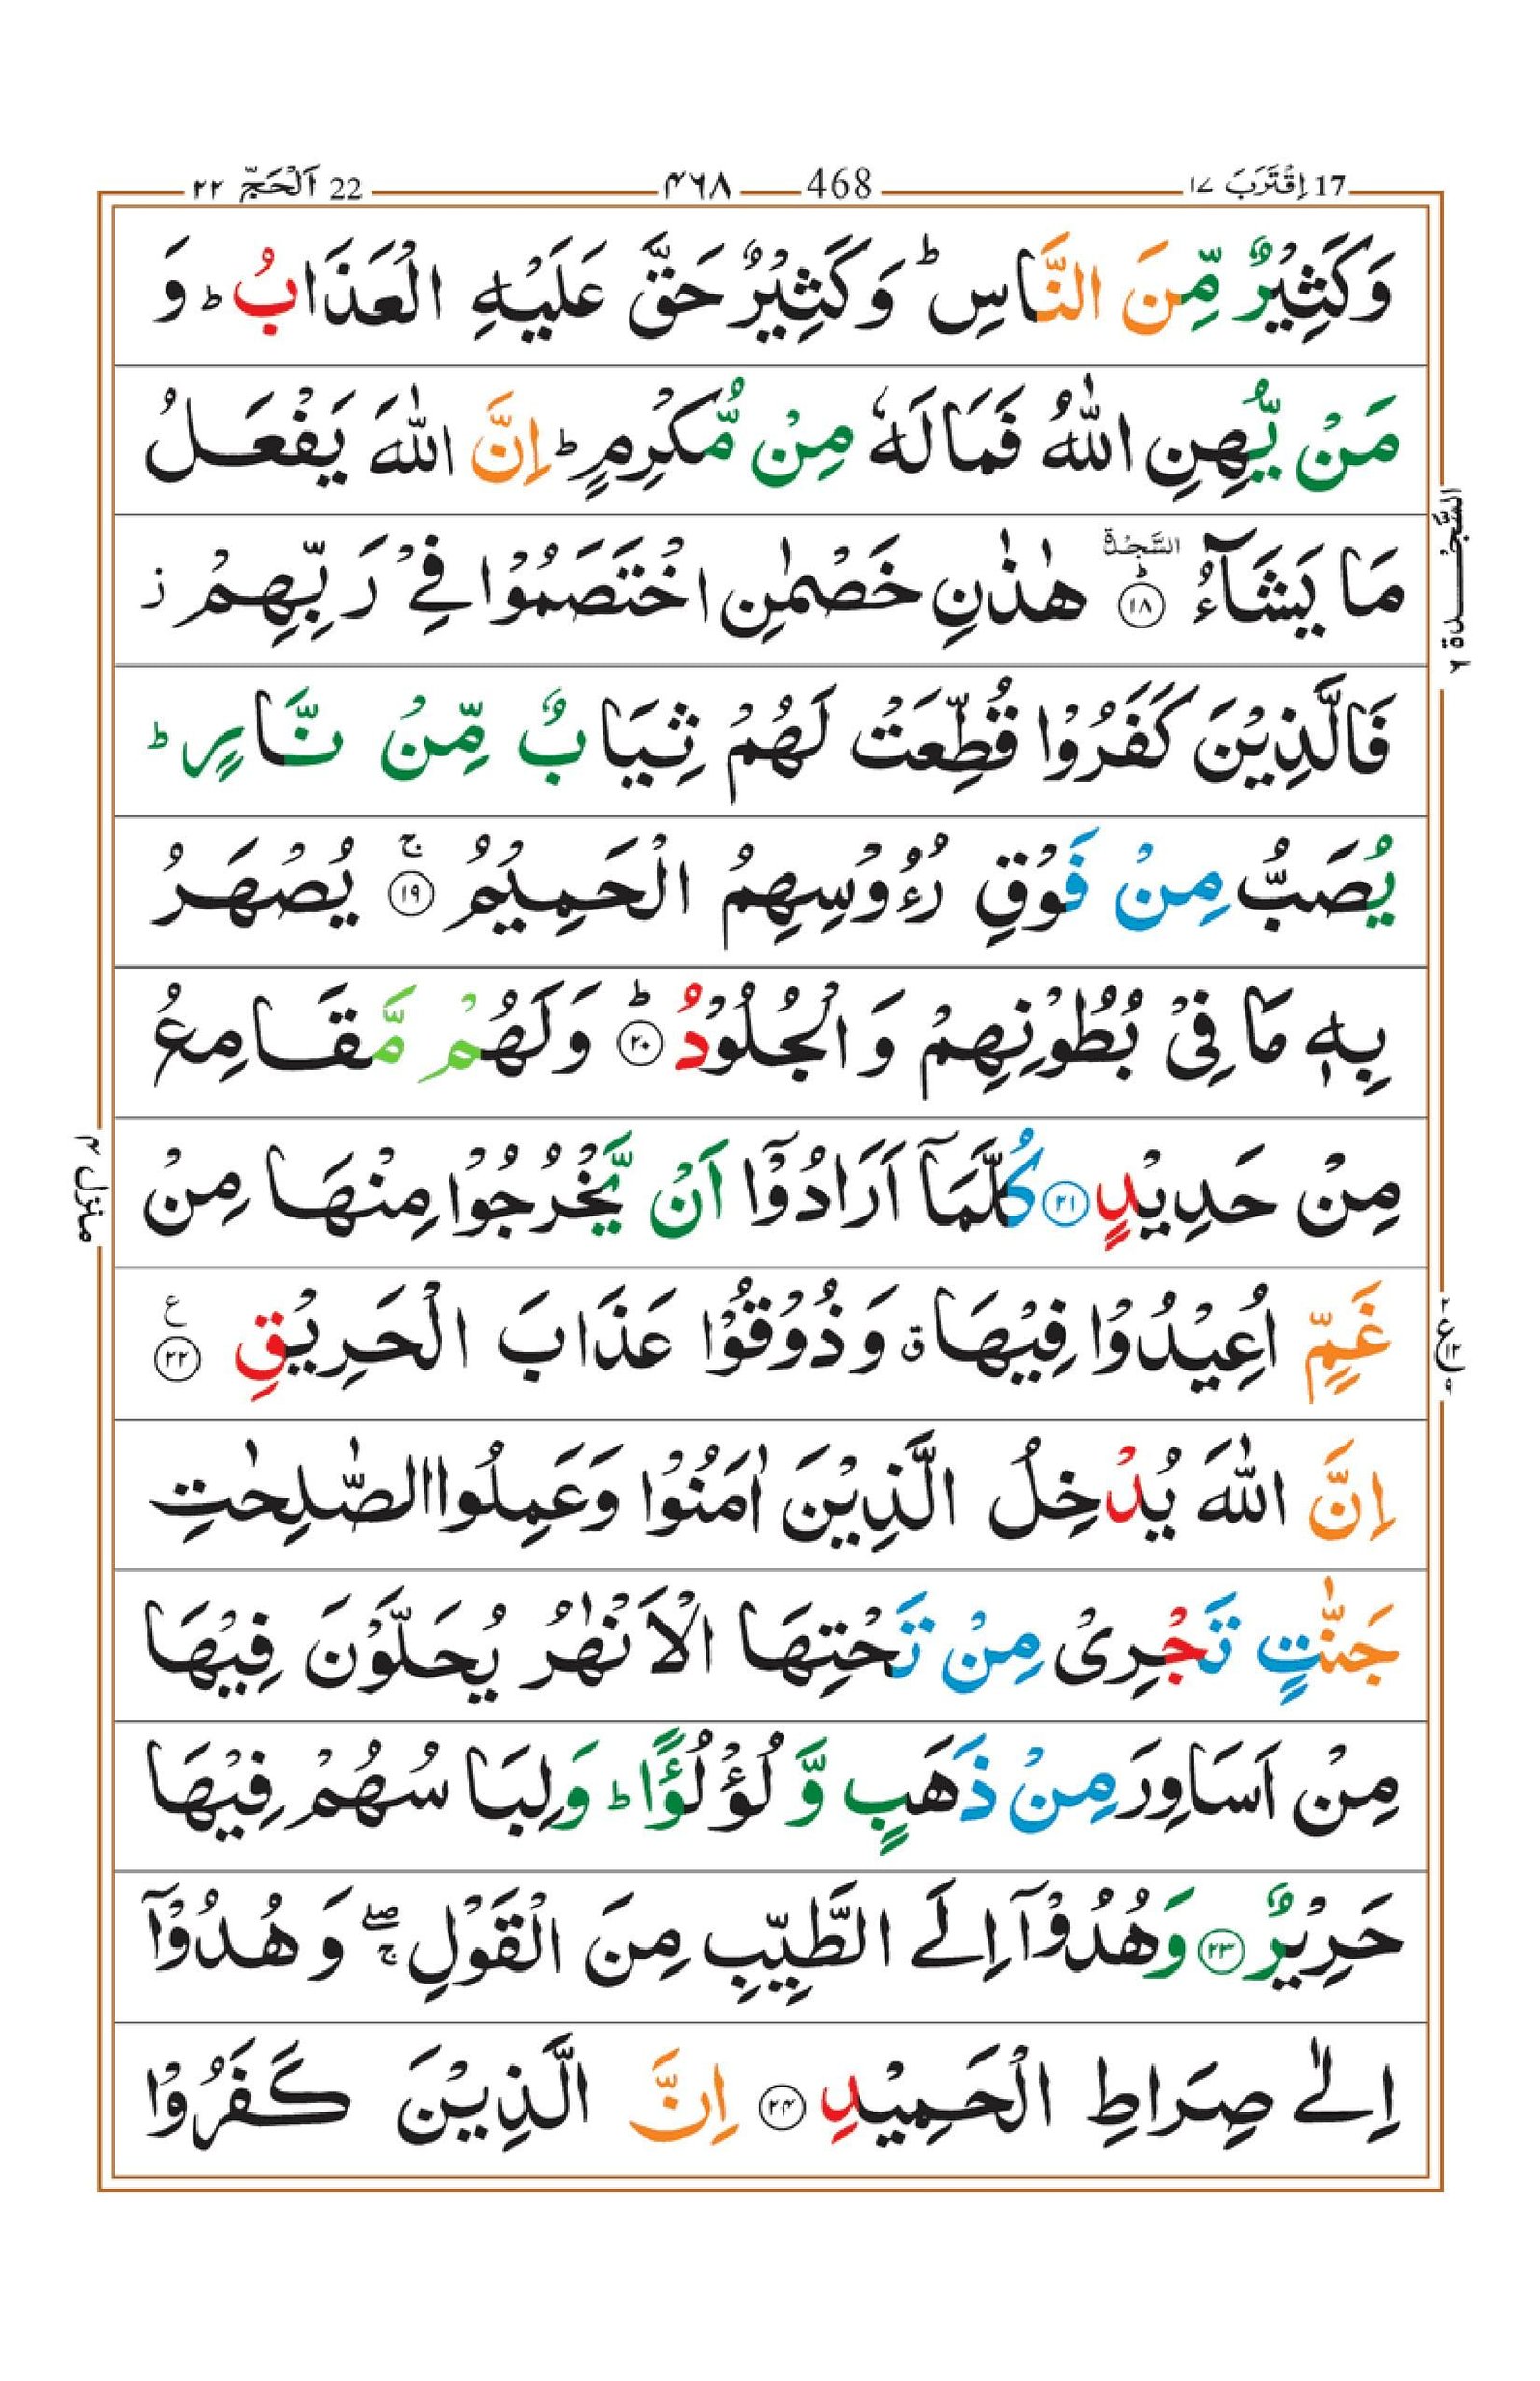 17 اِقْتَرَبَ ١٧
468 ٤٦٨
22 اَلْحَجّ ٢٢
وَكَثِيْرٌ مِّنَ النَّاسِ ؕ وَكَثِيْرٌ حَقَّ عَلَيْهِ الْعَذَابُ ؕ وَ
مَنْ يُّهِنِ اللّٰهُ فَمَا لَهٗ مِنْ مُّكْرِمٍ ؕ اِنَّ اللّٰهَ يَفْعَلُ
مَا يَشَآءُ ؕ ۱۸ السَّجْدَة هٰذٰنِ خَصْمٰنِ اخْتَصَمُوْا فِیْ رَبِّهِمْ ز
فَالَّذِيْنَ كَفَرُوْا قُطِّعَتْ لَهُمْ ثِيَابٌ مِّنْ نَّارٍ ؕ
يُصَبُّ مِنْ فَوْقِ رُءُوْسِهِمُ الْحَمِيْمُ ۚ ۱۹ يُصْهَرُ
بِهٖ مَا فِیْ بُطُوْنِهِمْ وَالْجُلُوْدُ ؕ ۲۰ وَلَهُمْ مَّقَامِعُ
مِنْ حَدِيْدٍ ۲۱ كُلَّمَآ اَرَادُوْٓا اَنْ يَّخْرُجُوْا مِنْهَا مِنْ
غَمٍّ اُعِيْدُوْا فِيْهَا ۃ وَذُوْقُوْا عَذَابَ الْحَرِيْقِ ۲۲ ع
اِنَّ اللّٰهَ يُدْخِلُ الَّذِيْنَ اٰمَنُوْا وَعَمِلُوا الصّٰلِحٰتِ
جَنّٰتٍ تَجْرِیْ مِنْ تَحْتِهَا الْاَنْهٰرُ يُحَلَّوْنَ فِيْهَا
مِنْ اَسَاوِرَ مِنْ ذَهَبٍ وَّلُؤْلُؤًا ؕ وَلِبَاسُهُمْ فِيْهَا
حَرِيْرٌ ۲۳ وَهُدُوْٓا اِلَى الطَّيِّبِ مِنَ الْقَوْلِ ۖۚ وَهُدُوْٓا
اِلٰى صِرَاطِ الْحَمِيْدِ ۲۴ اِنَّ الَّذِيْنَ كَفَرُوْا
السَّجْدَة ٦
٢ ع ١٢ ٩
منزل ٤